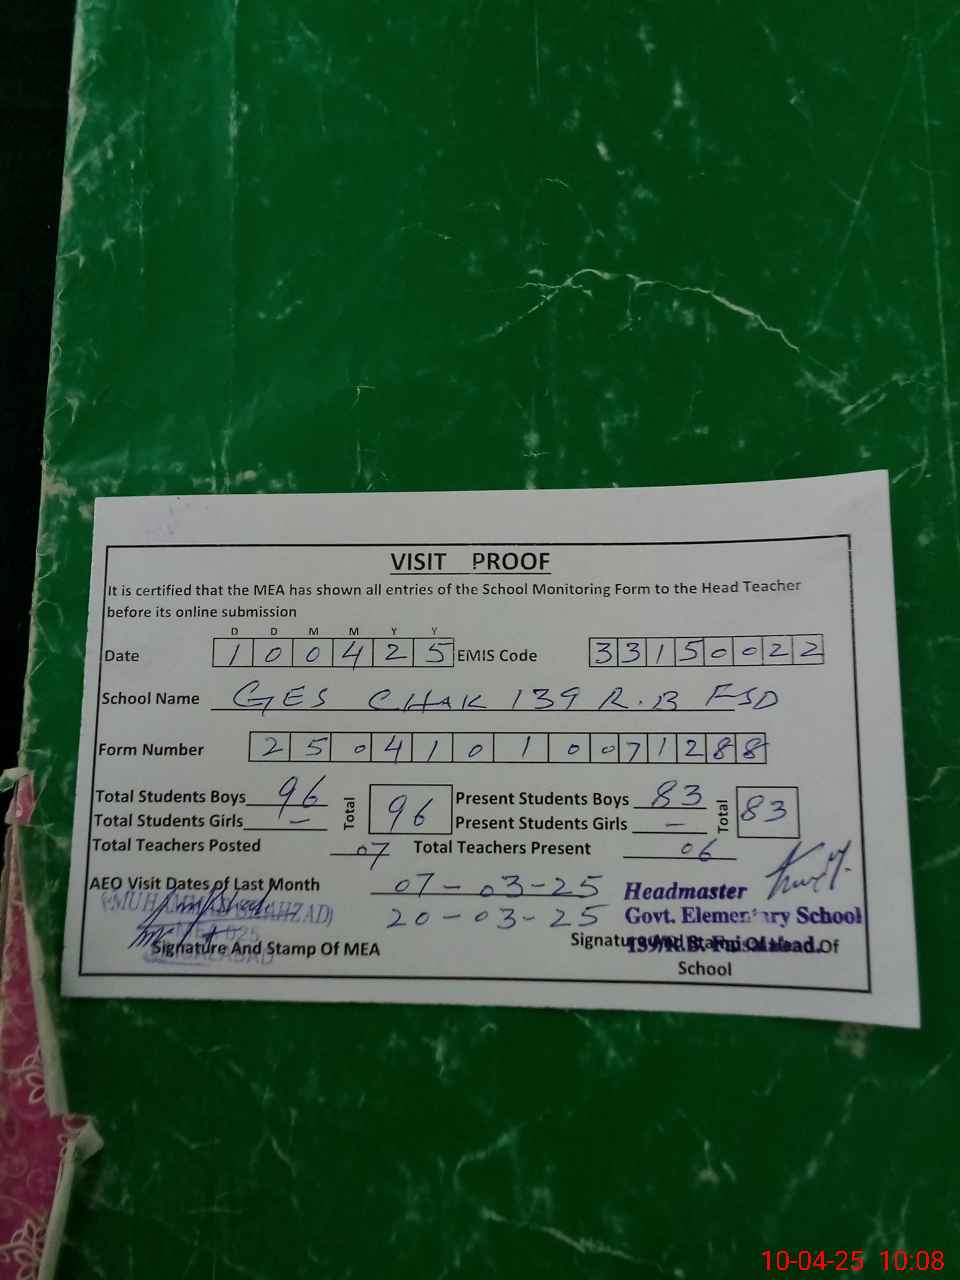 VISIT PROOF
It is certified that the MEA has shown all entries of the School Monitoring Form to the Head Teacher
before its online submission
D D M M Y Y
Date 1 0 0 4 2 5 EMIS Code 3 3 1 5 0 0 2 2
School Name GES CHAK 139 R.B FSD
Form Number 2 5 0 4 1 0 1 0 0 7 1 2 8 8
Total Students Boys 96 Total 96 Present Students Boys 83 Total 83
Total Students Girls — Present Students Girls —
Total Teachers Posted 07 Total Teachers Present 06
AEO Visit Dates of Last Month 07-03-25
20-03-25
Headmaster
(MUHAMMAD SHAHZAD)
Govt. Elementary School
139/R.B. Faisalabad.
Signature And Stamp Of MEA
Signature And Stamp Of Head Of
School
10-04-25 10:08